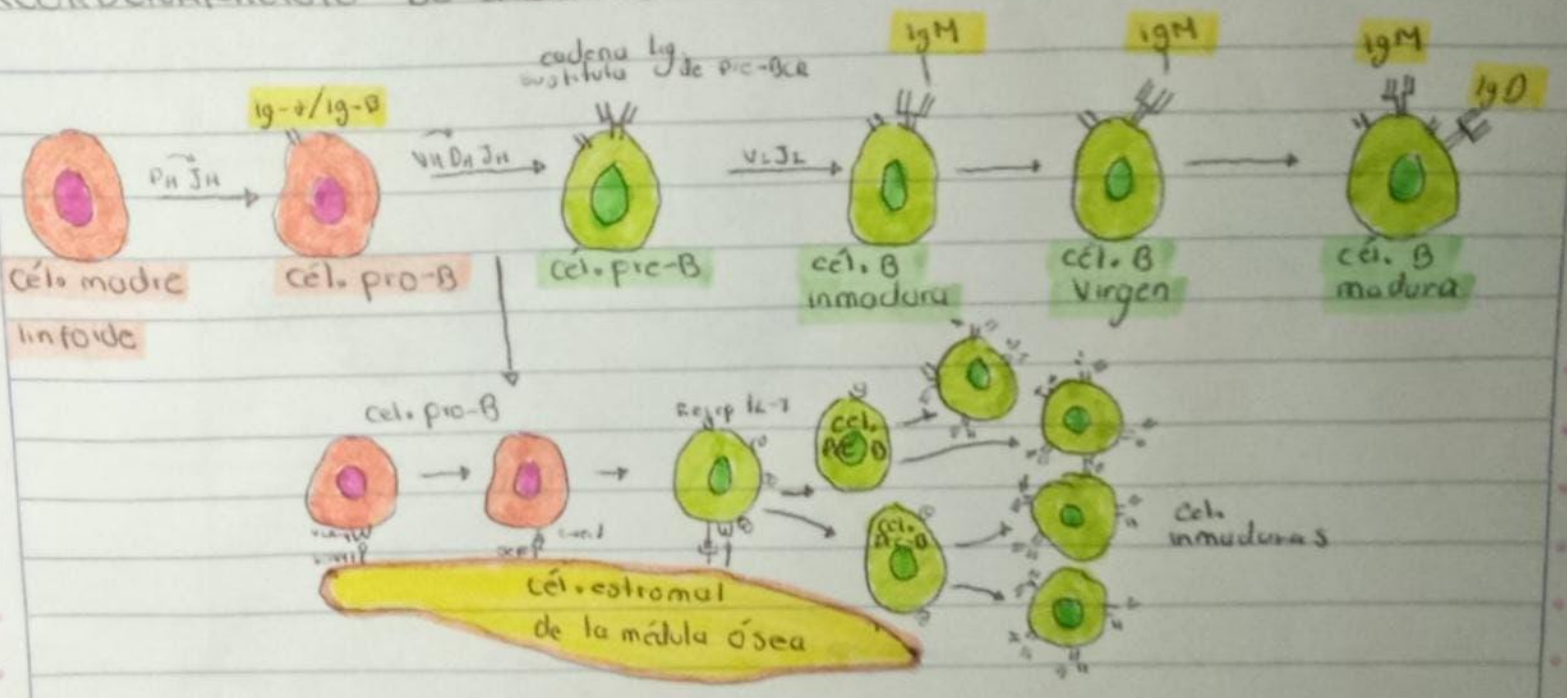 IgM
IgM
IgM
IgD
cadena lig. de pre-BCR
sustituta
Ig-α/Ig-B
DH JH
VH DH JH
VL JL
Cél. madre
linfoide
Cél. pro-B
Cél. pre-B
cél. B
inmadura
cél. B
Virgen
cél. B
madura
Cel. pro-B
Recep IL-7
cél.
Pre B
Cél.
Pre-B
Cel.
inmaduras
Cél. estromal
de la médula ósea